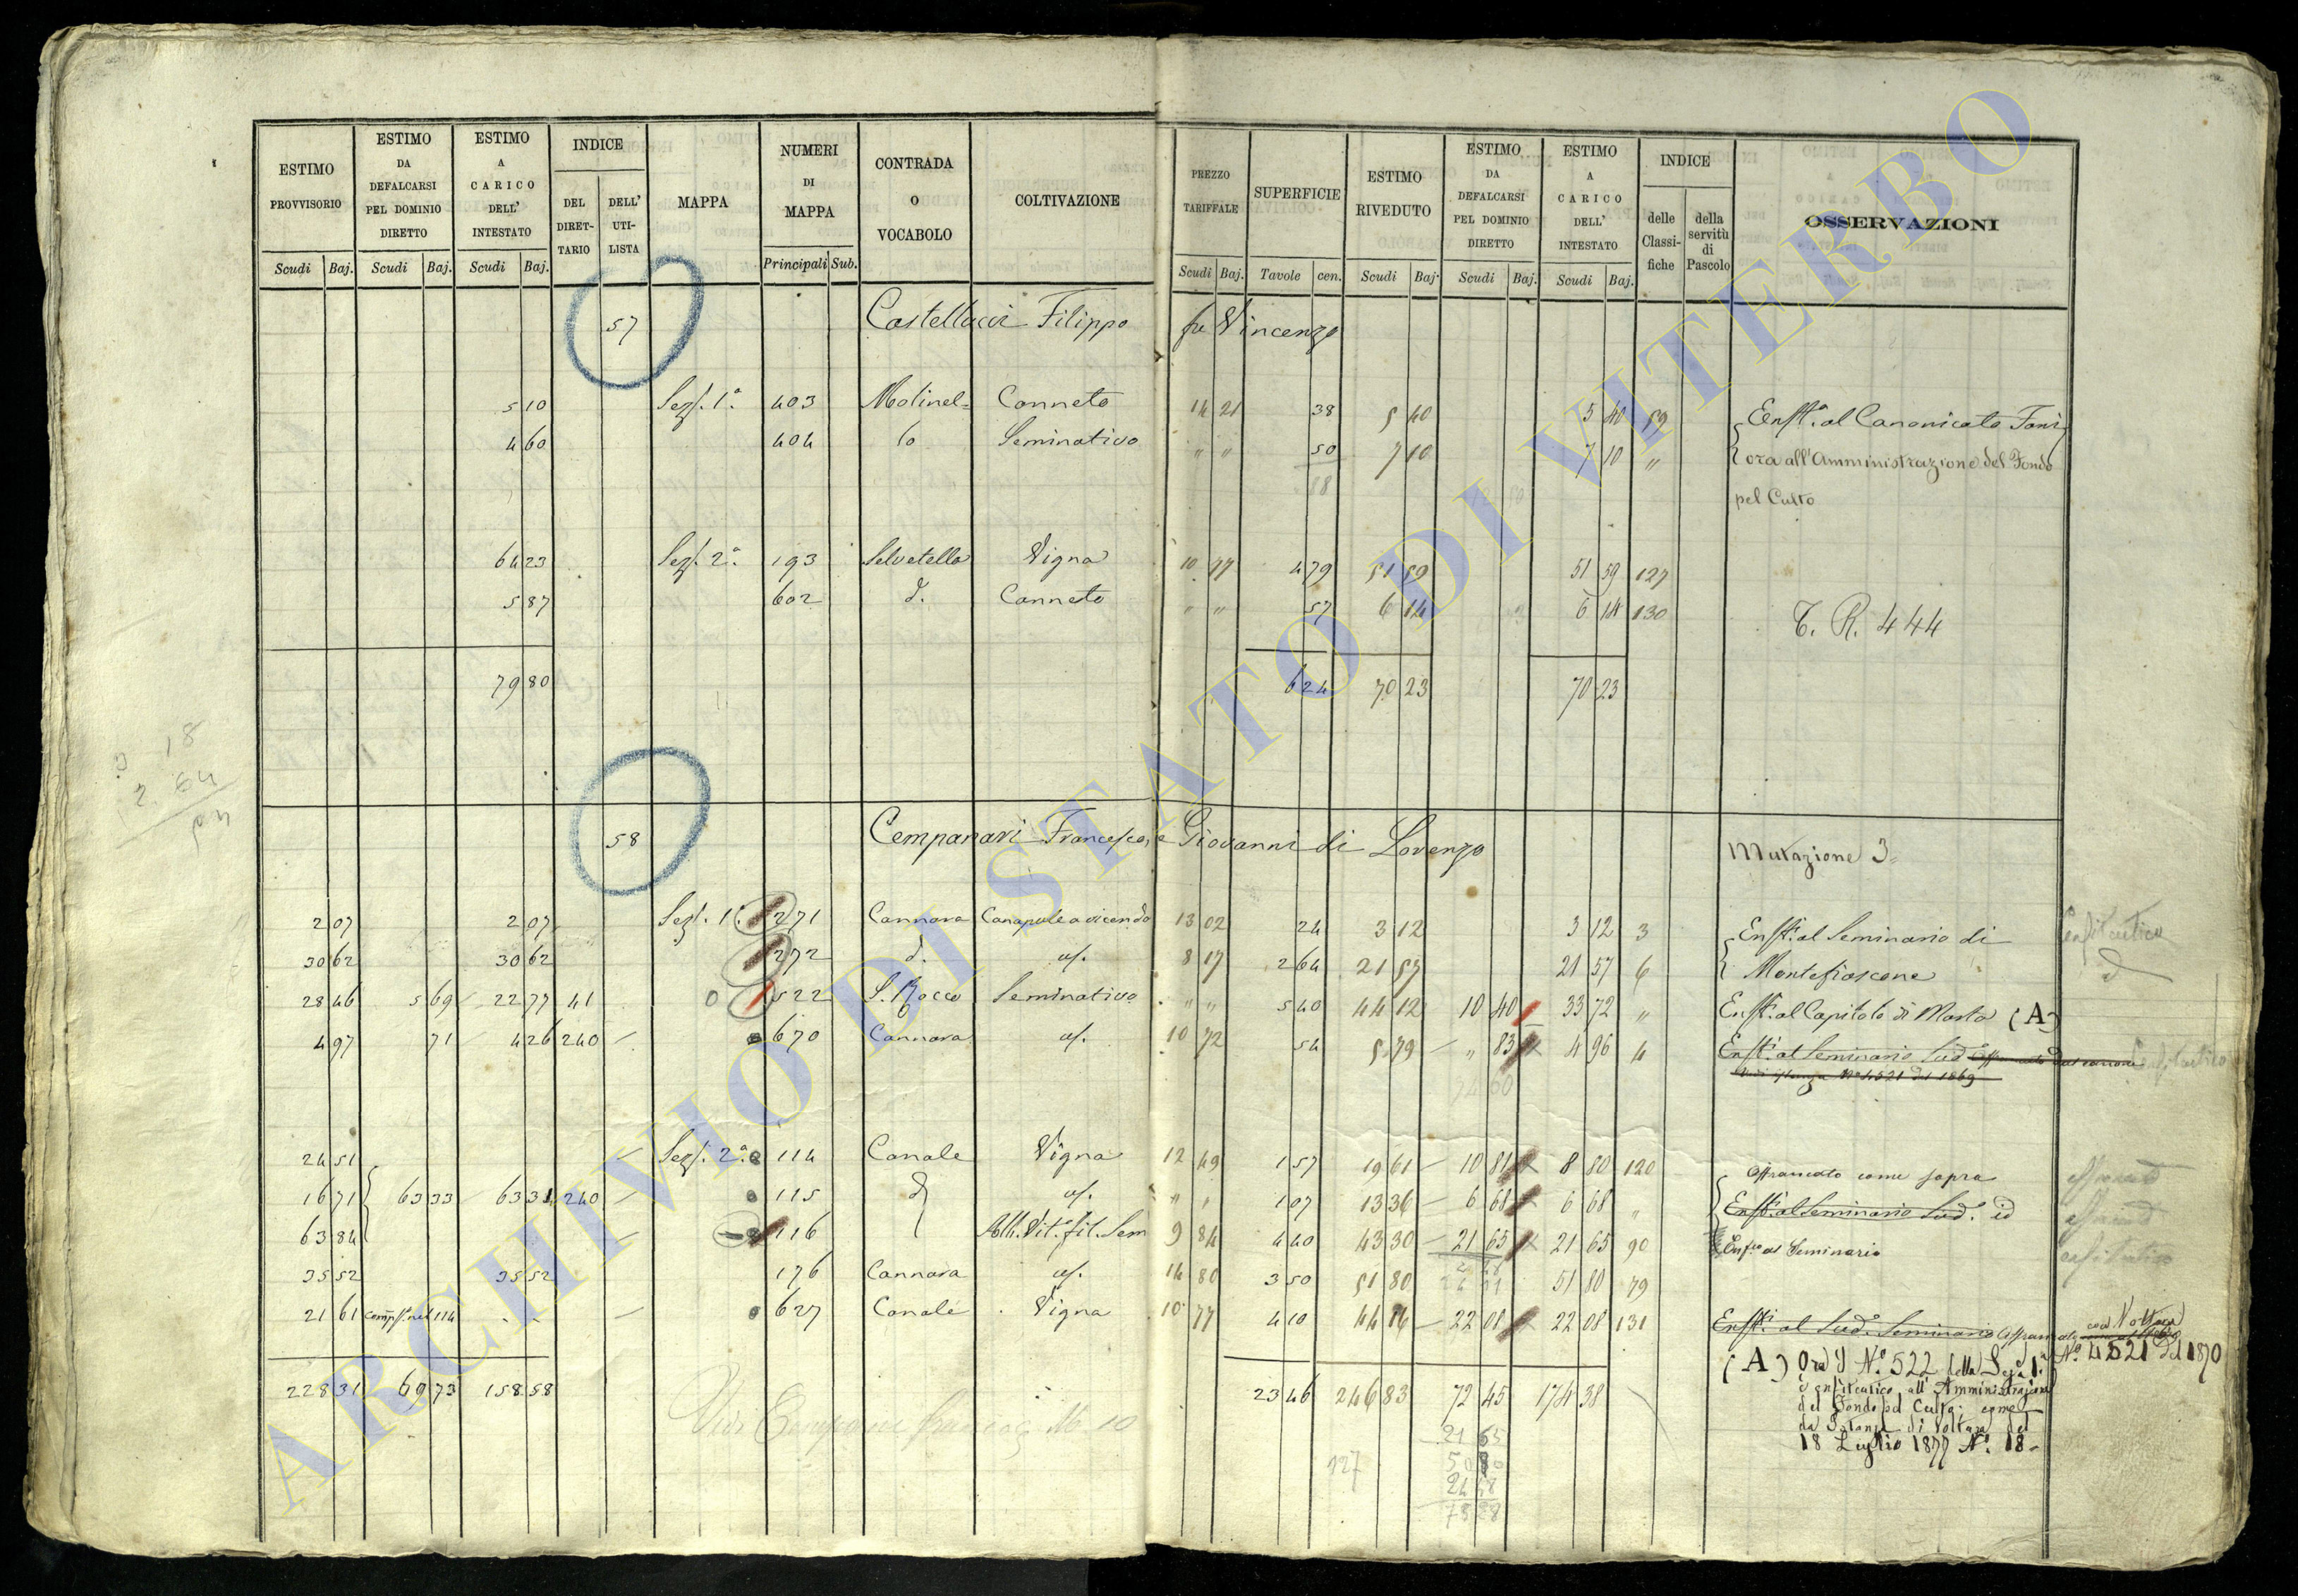 ESTIMO PROVVISORIO | ESTIMO DA DEFALCARSI PEL DOMINIO DIRETTO | ESTIMO A CARICO DELL' INTESTATO | INDICE | MAPPA | NUMERI DI MAPPA | CONTRADA O VOCABOLO | COLTIVAZIONE | PREZZO TARIFFALE | SUPERFICIE | ESTIMO RIVEDUTO | ESTIMO DA DEFALCARSI PEL DOMINIO DIRETTO | ESTIMO A CARICO DELL' INTESTATO | INDICE | OSSERVAZIONI
DEL DIRET-TARIO | DELL' UTI-LISTA | delle Classi-fiche | della servitù di Pascolo
Scudi Baj. | Scudi Baj. | Scudi Baj. | Principali Sub. | Scudi Baj. | Tavole cen. | Scudi Baj. | Scudi Baj. | Scudi Baj.
57 Castellucci Filippo fu Vincenzo
5 10 Sez. 1ª 403 Molinel= Canneto 14 21 38 5 40 5 40 59 Enft. al Canonicato Foni
4 60 404 lo Seminativo " " 50 7 10 7 10 " ora all'Amministrazione del Fondo
88 pel Culto
64 23 Sez. 2ª 193 Selvetella Vigna 10 77 4 79 51 59 51 59 127
5 87 602 d. Canneto " " 57 6 14 6 14 130 T. R. 444
79 80 6 24 70 23 70 23
18
2 64
58 Campanari Francesco, e Giovanni di Lorenzo Mutazione 3
2 07 2 07 Sez. 1ª 271 Cannara Canapule a vicenda 13 02 24 3 12 3 12 3 Enft. al Seminario di Enfiteutico
30 62 30 62 272 d. uf. 8 17 2 64 21 57 21 57 6 Montefiascone d
28 46 5 69 22 77 41 0 522 S. Rocco Seminativo " " 5 40 44 12 10 40 33 72 " Enft. al Capitolo di Marta (A)
4 97 71 4 26 240 670 Cannara uf. 10 72 54 5 79 " 83 4 96 4 Enft. al Seminario Sud.
N. 4521 del 1869
24 51 Sez. 2ª 114 Canale Vigna 12 49 1 57 19 61 10 81 8 80 120 Affrancato come sopra
16 71 63 33 63 31 240 115 d uf. " " 1 07 13 36 6 68 6 68 " Enft. al Seminario Sud. id
63 84 116 Alb. Vit. fil. Sem 9 84 4 40 43 30 21 65 21 65 90 Enf.co al Seminario
35 52 35 52 176 Cannara uf. 14 80 3 50 51 80 51 80 79
21 61 comp. nel 114 627 Canale Vigna 10 77 4 10 44 16 22 08 22 08 131 Enft. al Sud. Seminario Affrancato con Voltura
(A) Ora il N. 522 della Sez. 1ª N. 4521 del 1870
228 31 69 73 158 58 23 46 246 83 72 45 174 38 è enfiteutico all'Amministrazione
del Fondo pel Culto come
da Istanza di Voltura del
18 Luglio 1877 N. 18
21 65
127 50 80
73 28
ARCHIVIO DI STATO DI VITERBO